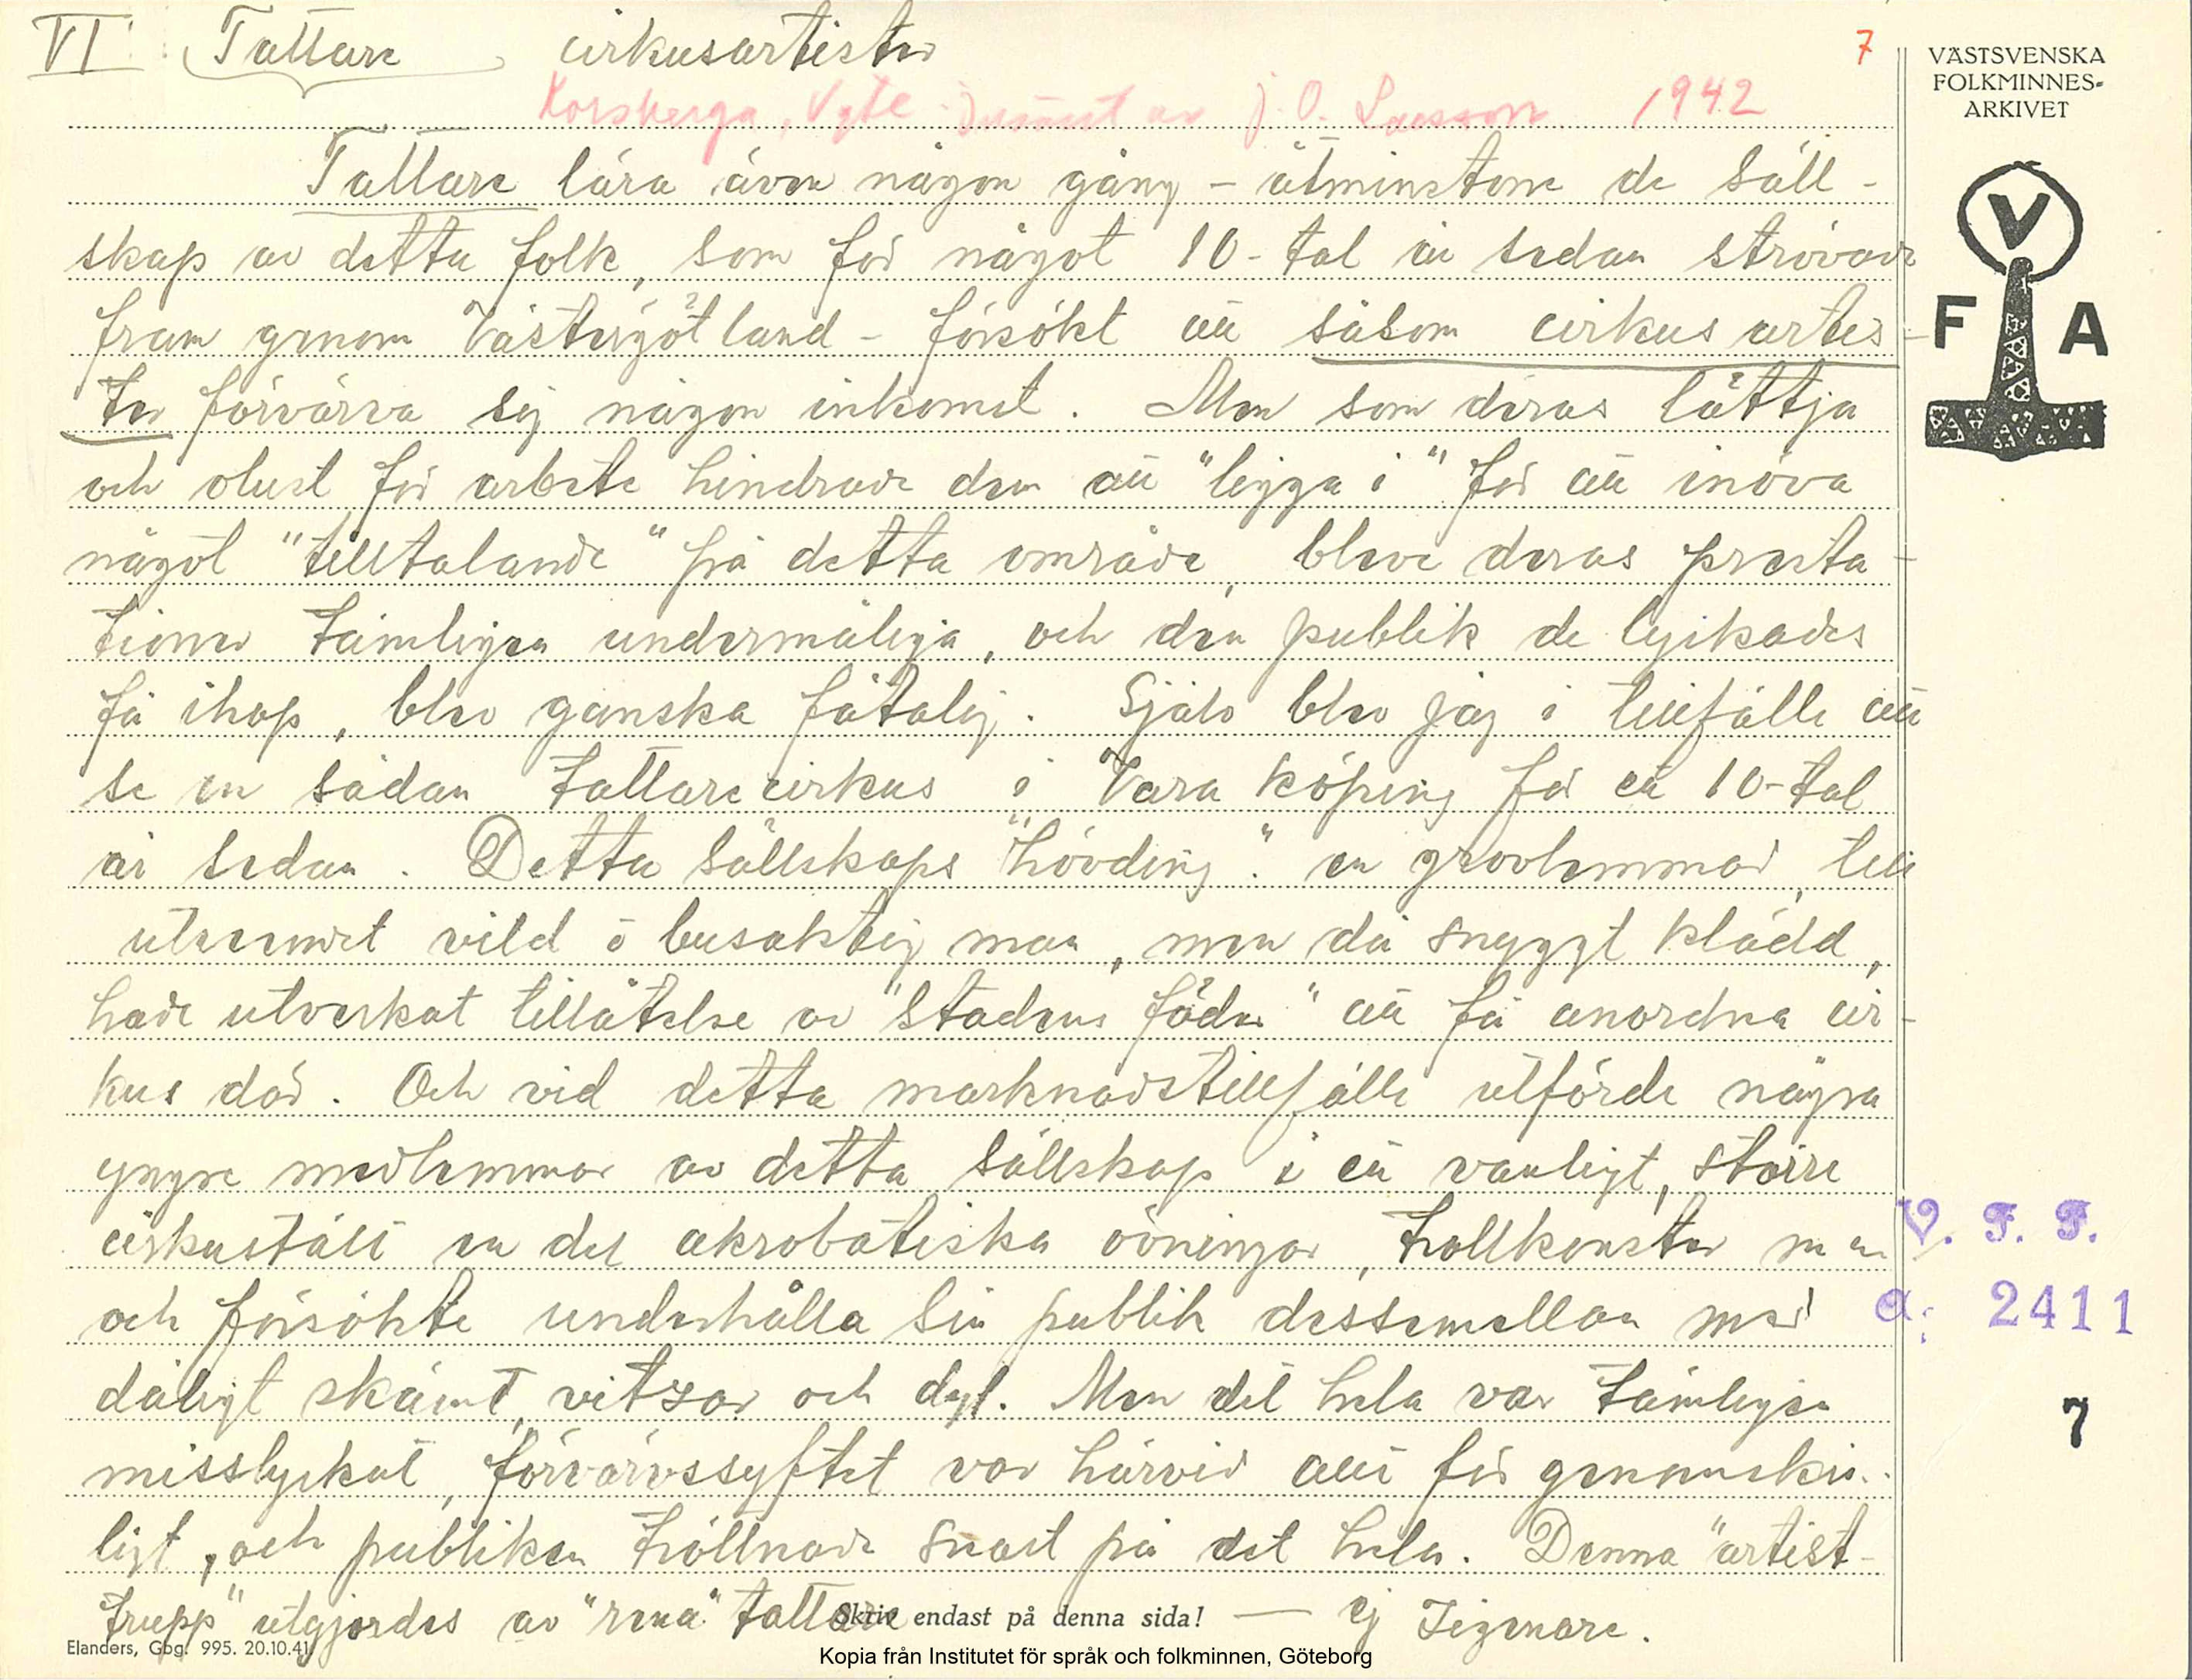 VI Tattare cirkusartister
7
Korsberga, Vgtl. Insänt av J. O. Larsson 1942
VÄSTSVENSKA
FOLKMINNES-
ARKIVET
V
F A
Tattare lära även någon gång – åtminstone de säll-
skap av detta folk, som för något 10-tal år sedan strövade
fram genom Västergötland – försökt att såsom cirkusartis-
ter förvärva sig någon inkomst. Men som deras lättja
och olust för arbete hindrade dem att "ligga i" för att inöva
något "tilltalande" på detta område, bleve deras presta-
tioner tämligen undermåliga, och den publik de lyckades
få ihop, blev ganska fåtalig. Själv blev jag i tillfälle att
se en sådan tattarecirkus i Vara köping för ett 10-tal
år sedan. Detta sällskaps "hövding" en grovlemmad, till
utseendet vild o busaktig man, men då snyggt klädd,
hade utverkat tillåtelse av "stadens fäder" att få anordna cir-
kus där. Och vid detta marknadstillfälle utförde några
yngre medlemmar av detta sällskap i ett vanligt, större
cirkustält en del akrobatiska övningar, trollkonster m m
och försökte underhålla sin publik dessemellan med
dåligt skämt, vitzar och dyl. Men det hela var tämligen
misslyckat, förvärvssyftet var härvid allt för genomskin-
ligt, och publiken tröttnade snart på det hela. Denna "artist-
trupp" utgjordes av "rena" tattare — ej Zigenare.
Skriv endast på denna sida!
V. F. F.
a: 2411
7
Elanders, Gbg. 995. 20.10.41
Kopia från Institutet för språk och folkminnen, Göteborg